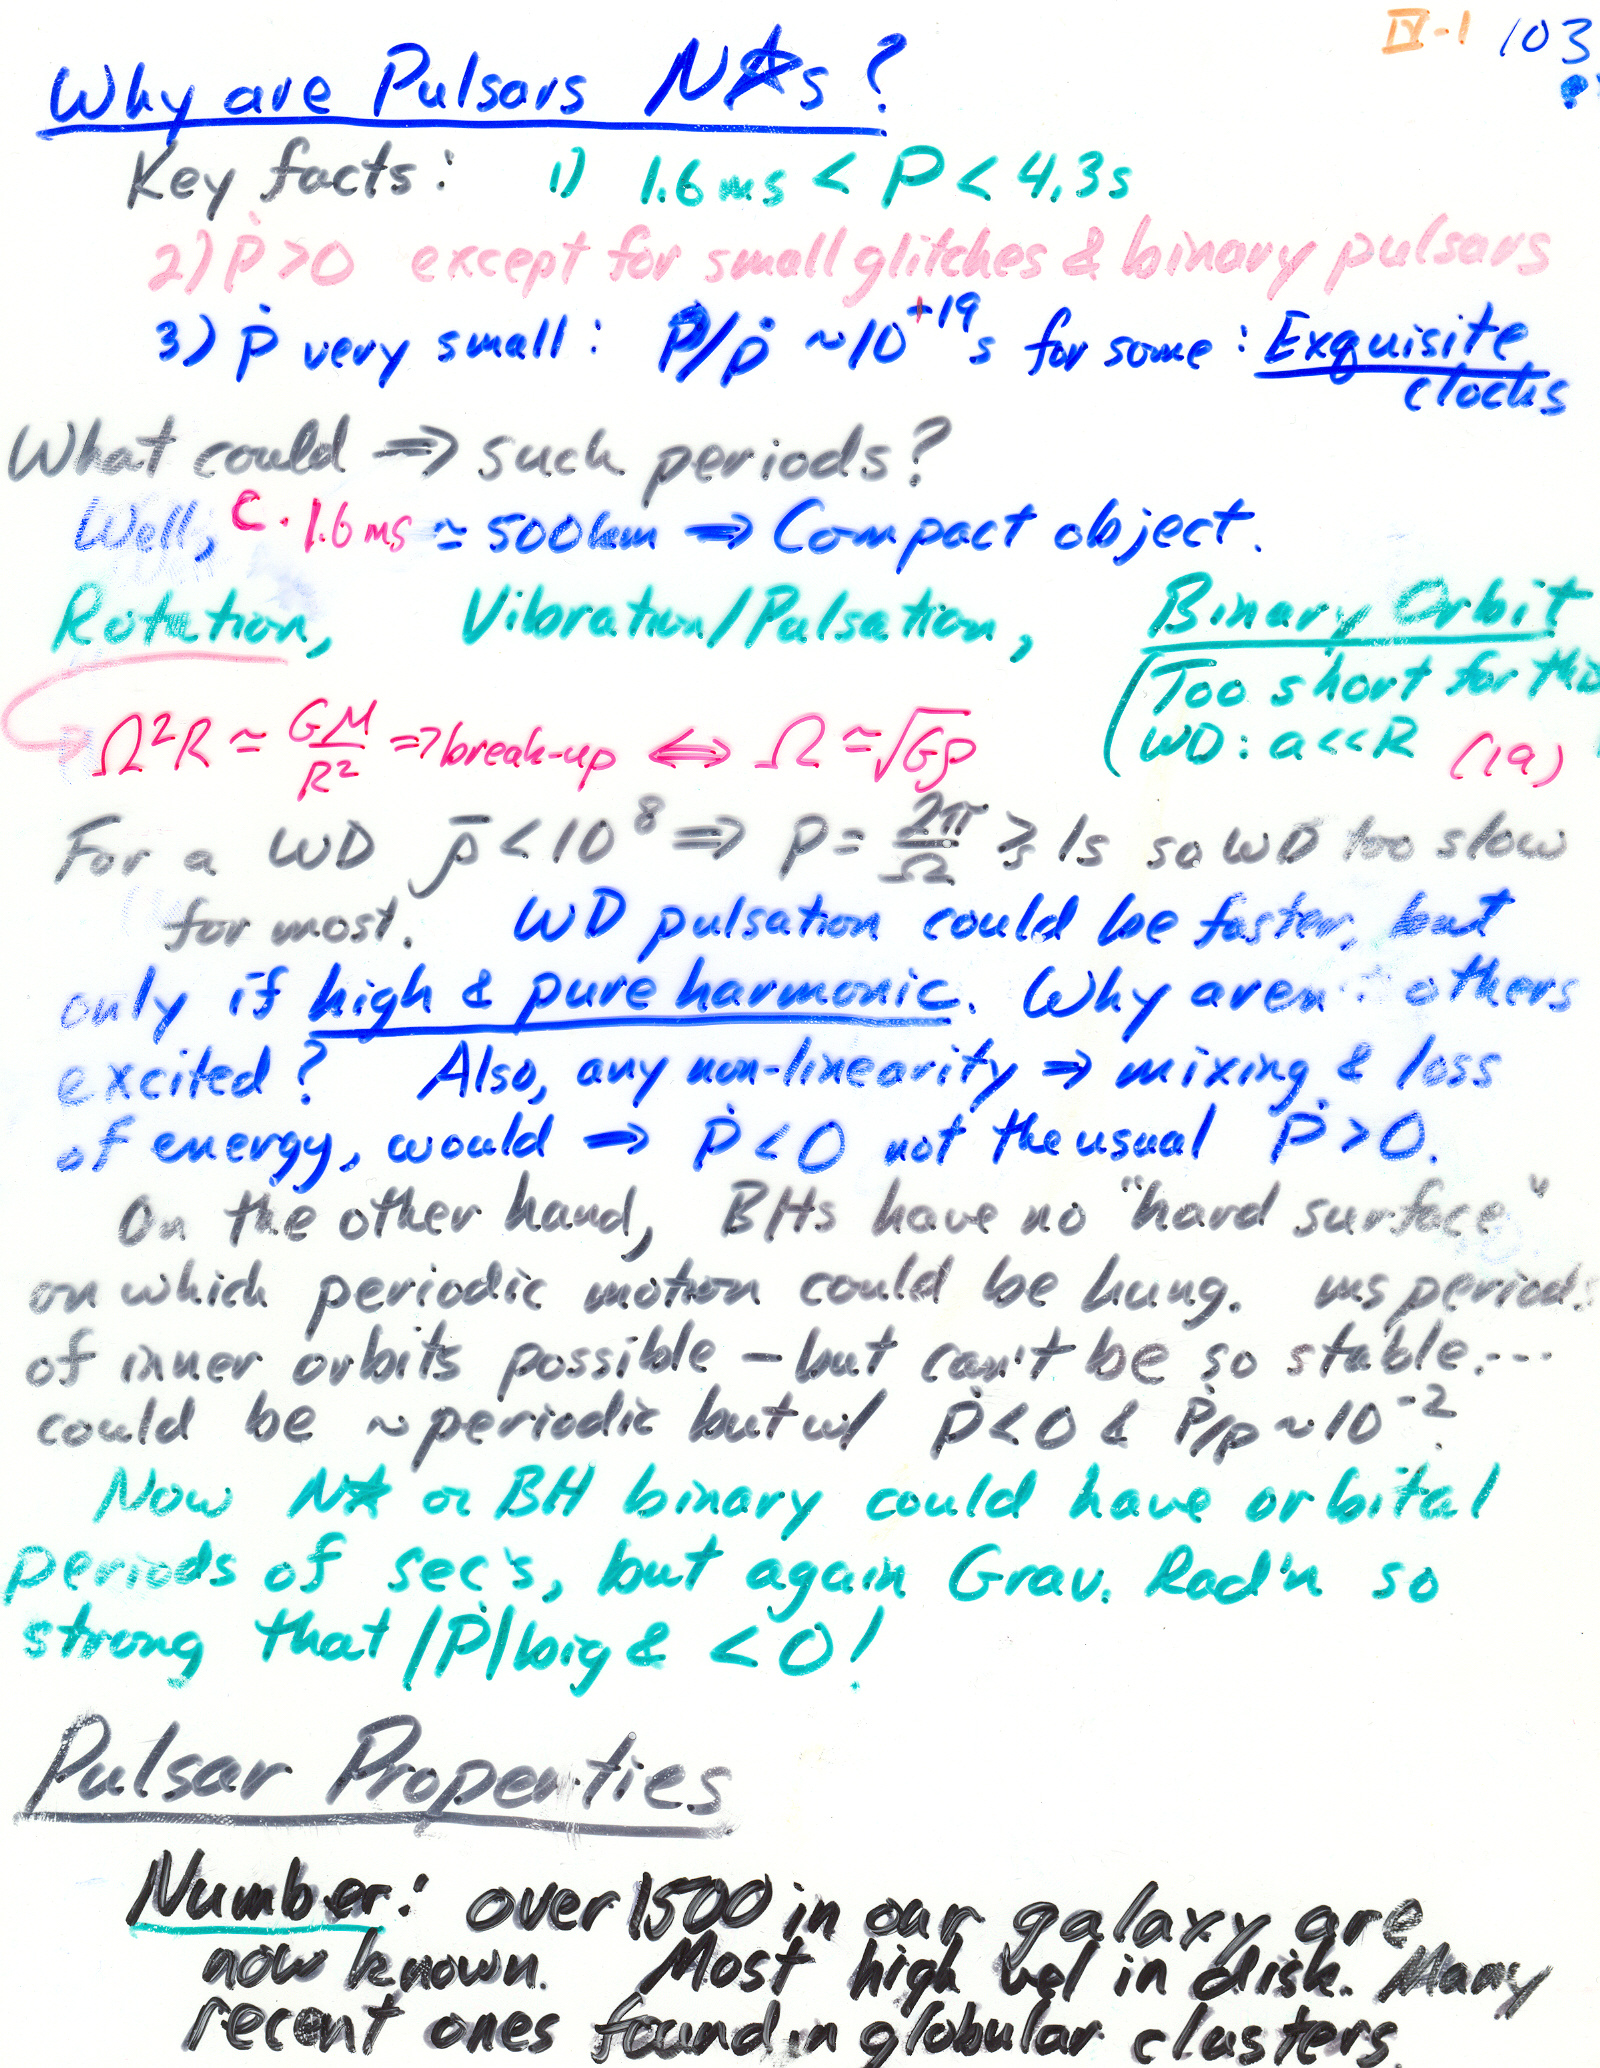 IV-1 103
Why are Pulsars N☆s?
Key facts: 1) 1.6ms < P < 4.3s
2) Ṗ>0 except for small glitches & binary pulsars
3) Ṗ very small: P/Ṗ ~10^+19 s for some: Exquisite
clocks
What could ⇒ such periods?
Well, c · 1.6ms ≃ 500km ⇒ Compact object.
Rotation, Vibration/Pulsation, Binary Orbit
(Too short for this
Ω²R ≃ GM/R² ⇒ break-up ⇔ Ω ≃ √Gρ WD: a<<R (1a)
For a WD ρ̄ < 10^8 ⇒ P = 2π/Ω ≳ 1s so WD too slow
for most. WD pulsation could be faster, but
only if high & pure harmonic. Why aren't others
excited? Also, any non-linearity ⇒ mixing & loss
of energy, would ⇒ Ṗ<0 not the usual Ṗ>0.
On the other hand, BHs have no "hard surface"
on which periodic motion could be hung. ms periods
of inner orbits possible – but can't be so stable....
could be ~periodic but w/ Ṗ<0 & Ṗ/P~10^-2.
Now N☆ or BH binary could have orbital
periods of sec's, but again Grav. Rad'n so
strong that |Ṗ| big & < 0!
Pulsar Properties
Number: over 1500 in our galaxy are
now known. Most high vel in disk. Many
recent ones found in globular clusters.